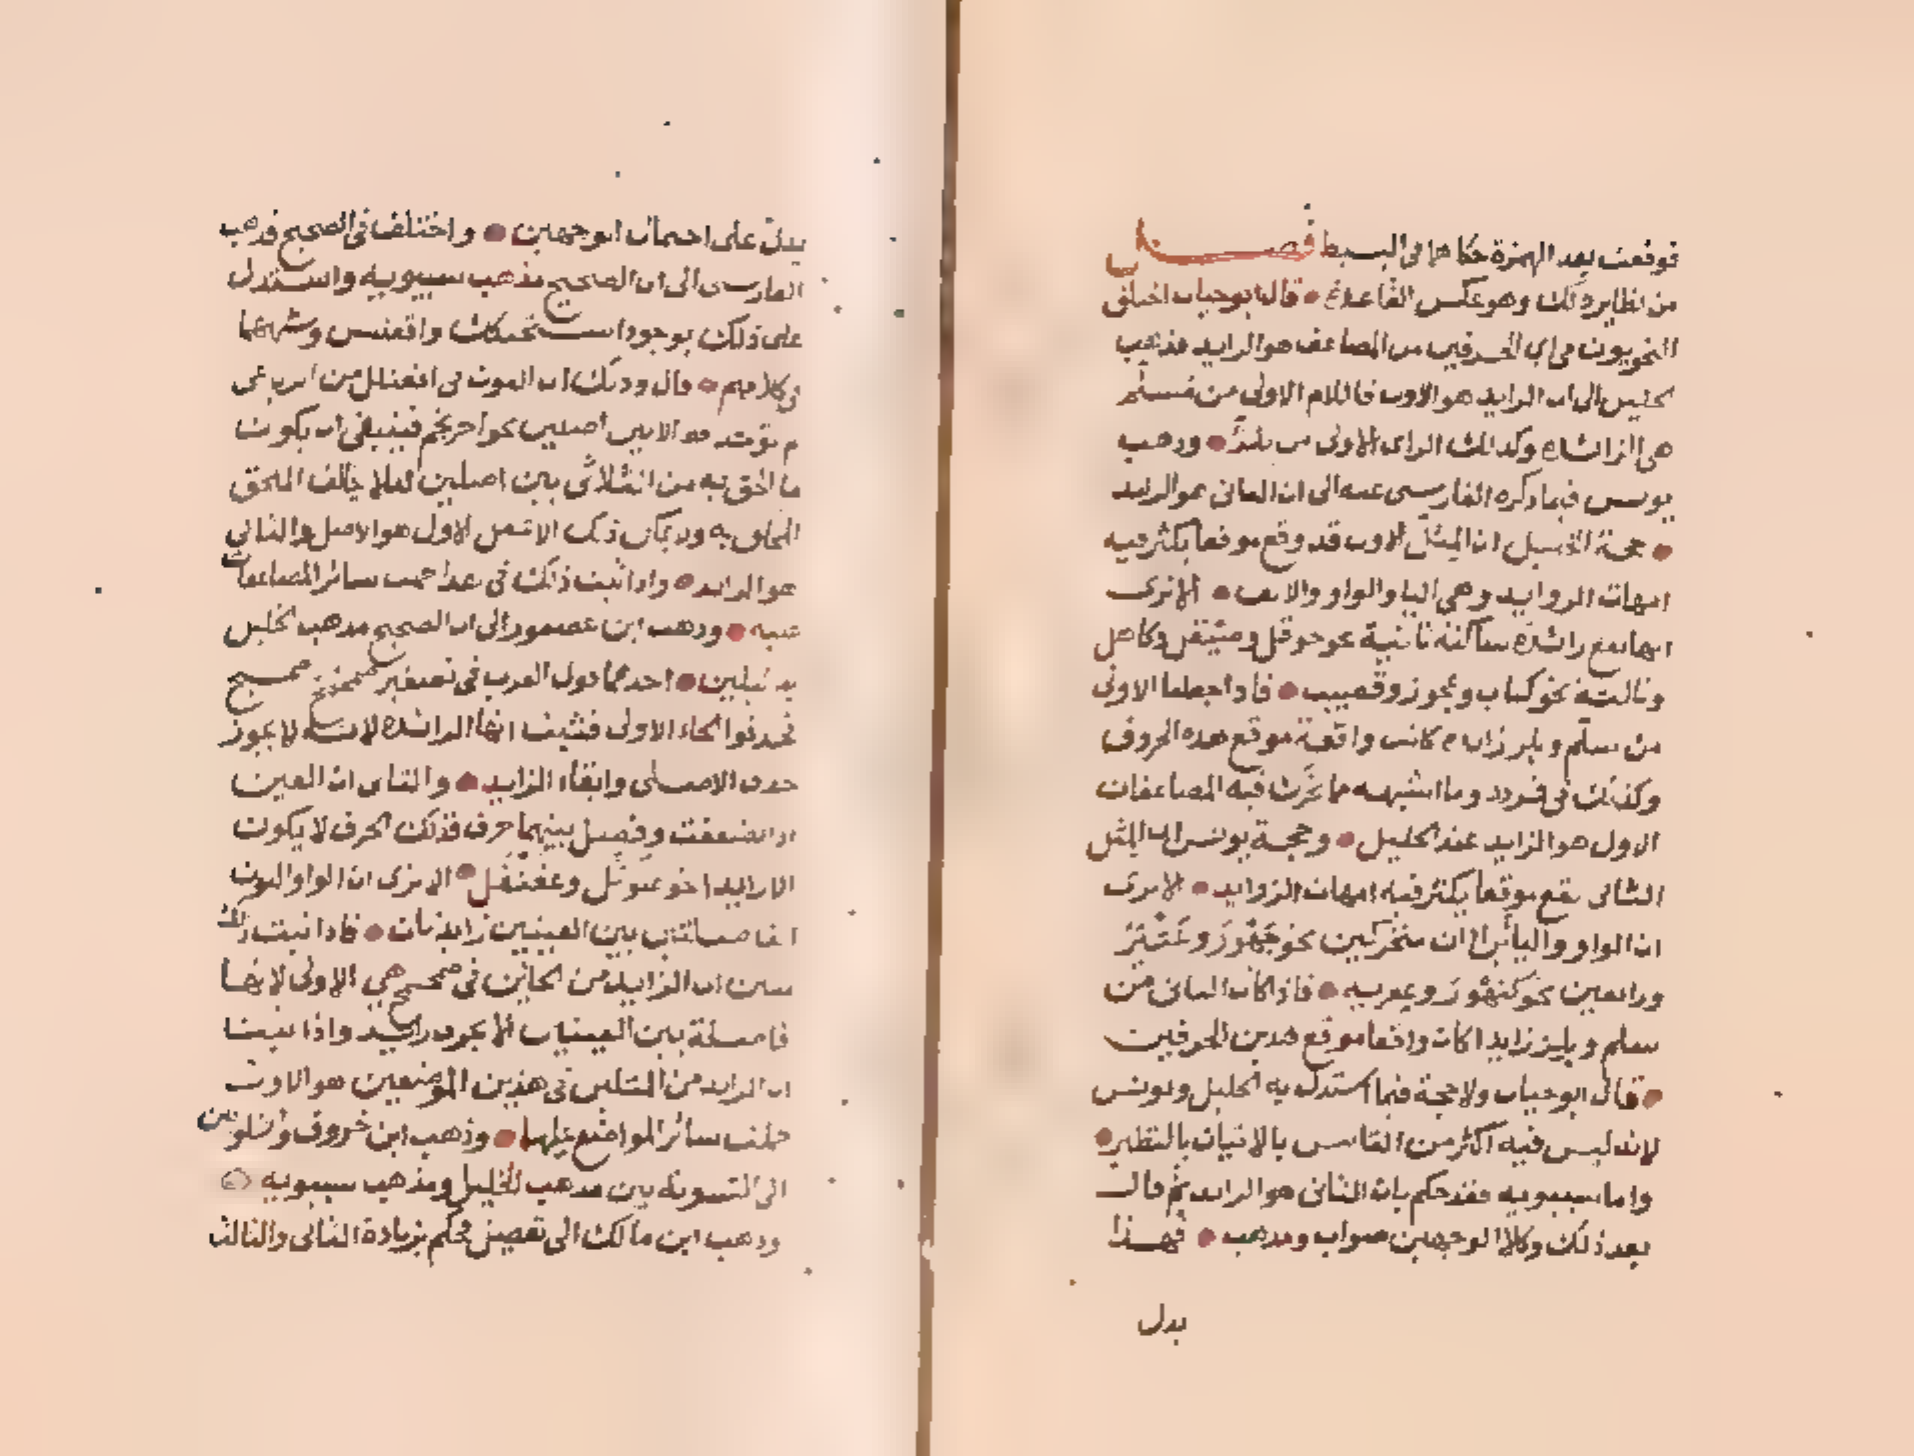 فوقعت بعد الهمزة حكاهما فى البسيط فصل
من نظاير ذلك وهو عكس القاعدة قال ابو حيان اختلف
النحويون فى اى الحرفين من المضاعف هو الزايد فذهب
الخليل الى ان الزايد هو الاول فاللام الاولى من سلم
هى الزائدة وكذلك الزاى الاولى من بلز وذهب
يونس فيما ذكره الفارسى عنه الى ان الثانى هو الزايد
حجة الخليل ان المثل الاول قد وقع موقعا يكثر فيه
امهات الزوايد وهى اليا والواو والالف الا ترى
انها تقع زائدة ساكنة ثانية نحو حوقل وصيقل وكاهل
وثالثة نحو كتاب وعجوز وقضيب فاذا جعلنا الاولى
من سلم وبلز زايدة كانت واقعة موقع هذه الحروف
وكذلك فى قردد وما اشبهه مما تحرك فيه المضاعفان
الاول هو الزايد عند الخليل وحجة يونس ان المثل
الثانى يقع موقعا يكثر فيه امهات الزوايد الا ترى
ان الواو واليا يزادان متحركين نحو جهور وعثير
ورابعين نحو كنهور وعفرية فاذا كان الثانى من
سلم وبلز زايدا كان واقعا موقع هذين الحرفين
قال ابو حيان ولا حجة فيما استدل به الخليل ويونس
لانه ليس فيه اكثر من التانيس بالاتيان بالنظير
واما سيبويه فقد حكم بان الثانى هو الزايد ثم قال
بعد ذلك وكلا الوجهين صواب ومذهب فهذا
يدل
يدل على احتمال الوجهين واختلف فى الصحيح فذهب
الفارسى الى ان الصحيح مذهب سيبويه واستدل
على ذلك بوجود اسحنكك واقعنسس وشبههما
فى كلامهم قال وذلك ان النون فى افعنلل من الرباعى
لم توجد قط الا بين اصلين نحو احرنجم فينبغى ان يكون
ما الحق به من الثلاثى بين اصلين لئلا يخالف الملحق
الملحق به ولا يمكن ذلك الا بجعل الاول هو الاصل والثانى
هو الزايد واذا ثبت ذلك فى هذا حملت سائر المضاعفات
عليه وذهب ابن عصفور الى ان الصحيح مذهب الخليل
بدليلين احدهما قول العرب فى تصغير صمحمح صميمح
فحذفوا الحاء الاولى فثبت انها الزائدة لانه لا يجوز
حذف الاصلى وابقاء الزايد والثانى ان العين
اذا تضعفت وفصل بينهما حرف فذلك الحرف لا يكون
الا زايدا نحو عثوثل وعقنقل الا ترى ان الواو والنون
الفاصلتين بين العينين زايدتان فاذا ثبت ذلك
تبين ان الزايد من الحائين فى صمحمح هى الاولى لانها
فاصلة بين العينين فلا يجوز زايد واذا ثبت
ان الزايد من المثلين فى هذين الموضعين هو الاول
حملت سائر المواضع عليها وذهب ابن خروف والشلوبين
الى التسوية بين مذهب الخليل ومذهب سيبويه
وذهب ابن مالك الى تفصيل فحكم بزيادة الثانى والثالث